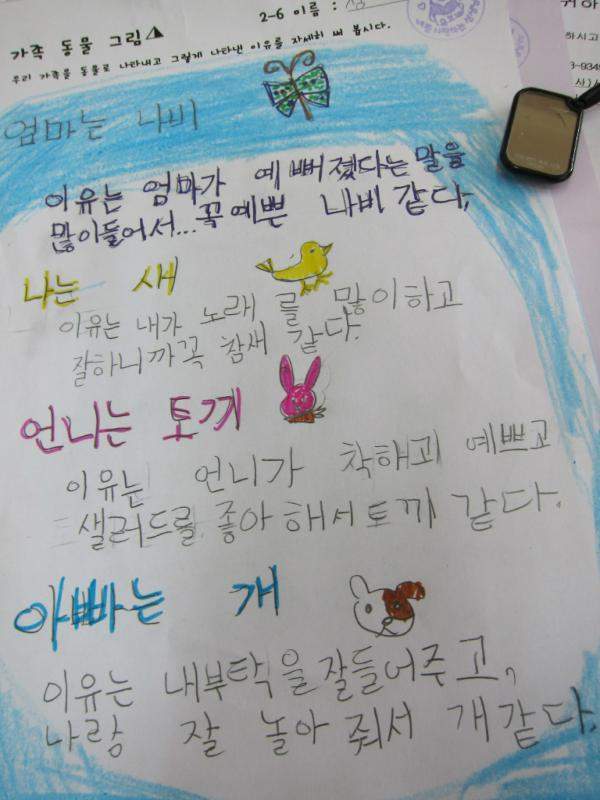 가족 동물 그림
2-6 이름 :
우리 가족을 동물로 나타내고 그렇게 나타낸 이유를 자세히 써 봅시다.
엄마는 나비
이유는 엄마가 예뻐졌다는 말을
많이들어서...꼭예쁜 나비 같다,
나는 새
이유는 내가 노래 를 많이하고
잘하니까꼭 참새 같다.
언니는 토끼
이유는 언니가 착해괴 예쁘고
샐러드를 좋아해서토끼 같다.
아빠는 개
이유는 내부탁을잘들어주고,
나랑 잘 놀아 줘서 개같다.
하시고